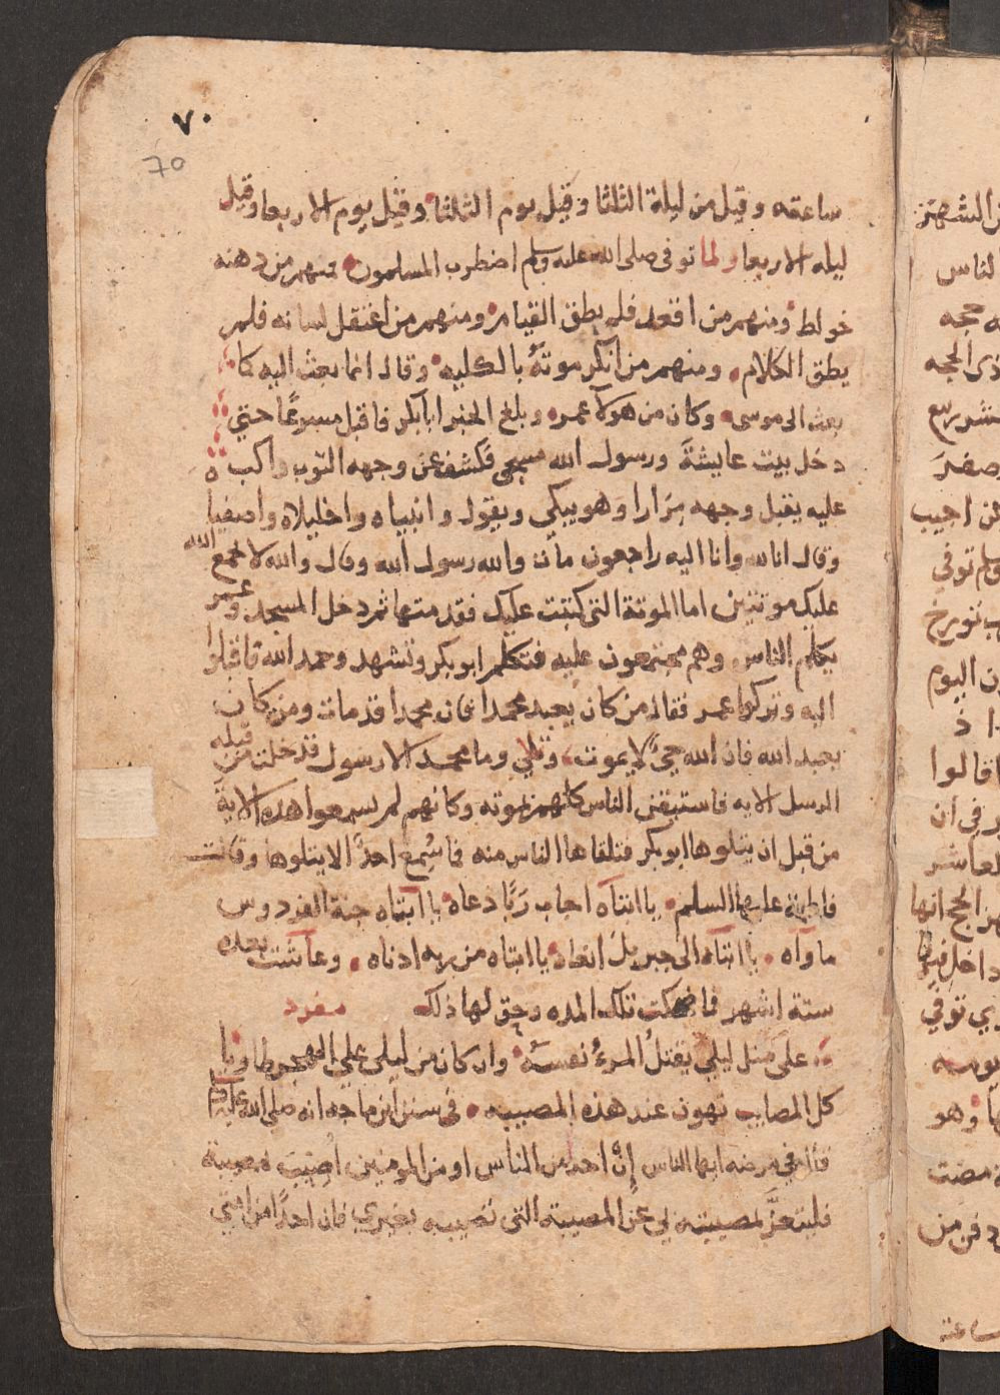 ٧٠
70
ساعته وقيل من ليلة الثلثا وقيل يوم الثلثا وقيل يوم الاربعا وقيل
ليله الاربعا ولما توفى صلى الله عليه وسلم اضطرب المسلمون فمنهم من دهنه
خولط ومنهم من اقعد فلم يطق القيام ومنهم من اعتقل لسانه فلم
يطق الكلام ومنهم من انكر موته بالكليه وقال انما بعث اليه كما
بعث الى موسى وكان من هولآ عمر وبلغ الخبر ابابكر فاقبل مسرعًا حتي
دخل بيت عايشة ورسول الله مسجى فكشف عن وجهه الثوب واكب
عليه يقبل وجهه مرارا وهو يبكي ويقول وانبياه واخليلاه واصفياه
وقال انا لله وانا اليه راجعون مات والله رسول الله وقال والله لا يجمع الله
عليك موتتين اما الموتة التي كتبت عليك فقد متها ثم دخل المسجد وعمر
يكلم الناس وهم مجتمعون عليه فتكلم ابو بكر وتشهد وحمد الله فاقبلوا
اليه وتركوا عمر فقال من كان يعبد محمدا فان محمدا قد مات ومن كان
يعبد الله فان الله حيٌ لا يموت وتلي وما محمد الا رسول قد خلت من قبله
الرسل الايه فاستيقن الناس كلهم بموته وكانهم لم يسمعوا هذه الاية
من قبل ان يتلوها ابو بكر فتلقاها الناس منه فما سُمع احدٌ الا يتلوها وقالت
فاطمة عليها السلم يا ابتاه اجاب رَبًّا دعاه يا ابتاه جنة الفردوس
ماوآه يا ابتاه الى جبريل انعاه يا ابتاه من ربه ادناه وعاشت بعده
ستة اشهر فما ضحكت تلك المده وحق لها ذلك مفرد
على مثل ليلي يقتلُ المرءُ نفسَهُ وان كان من ليلى على الهجر طاويا
كل المصايب تهون عند هذه المصيبه في سنن ابن ماجه انه صلى الله عليه وسلم
قال في مرضه ايها الناس إنْ احد من الناس او من المومنين اُصيبَ بمصيبة
فليتعزَّ بمصيبته بي عن المصيبة التي تصيبه بغيري فان احدًا من امتي